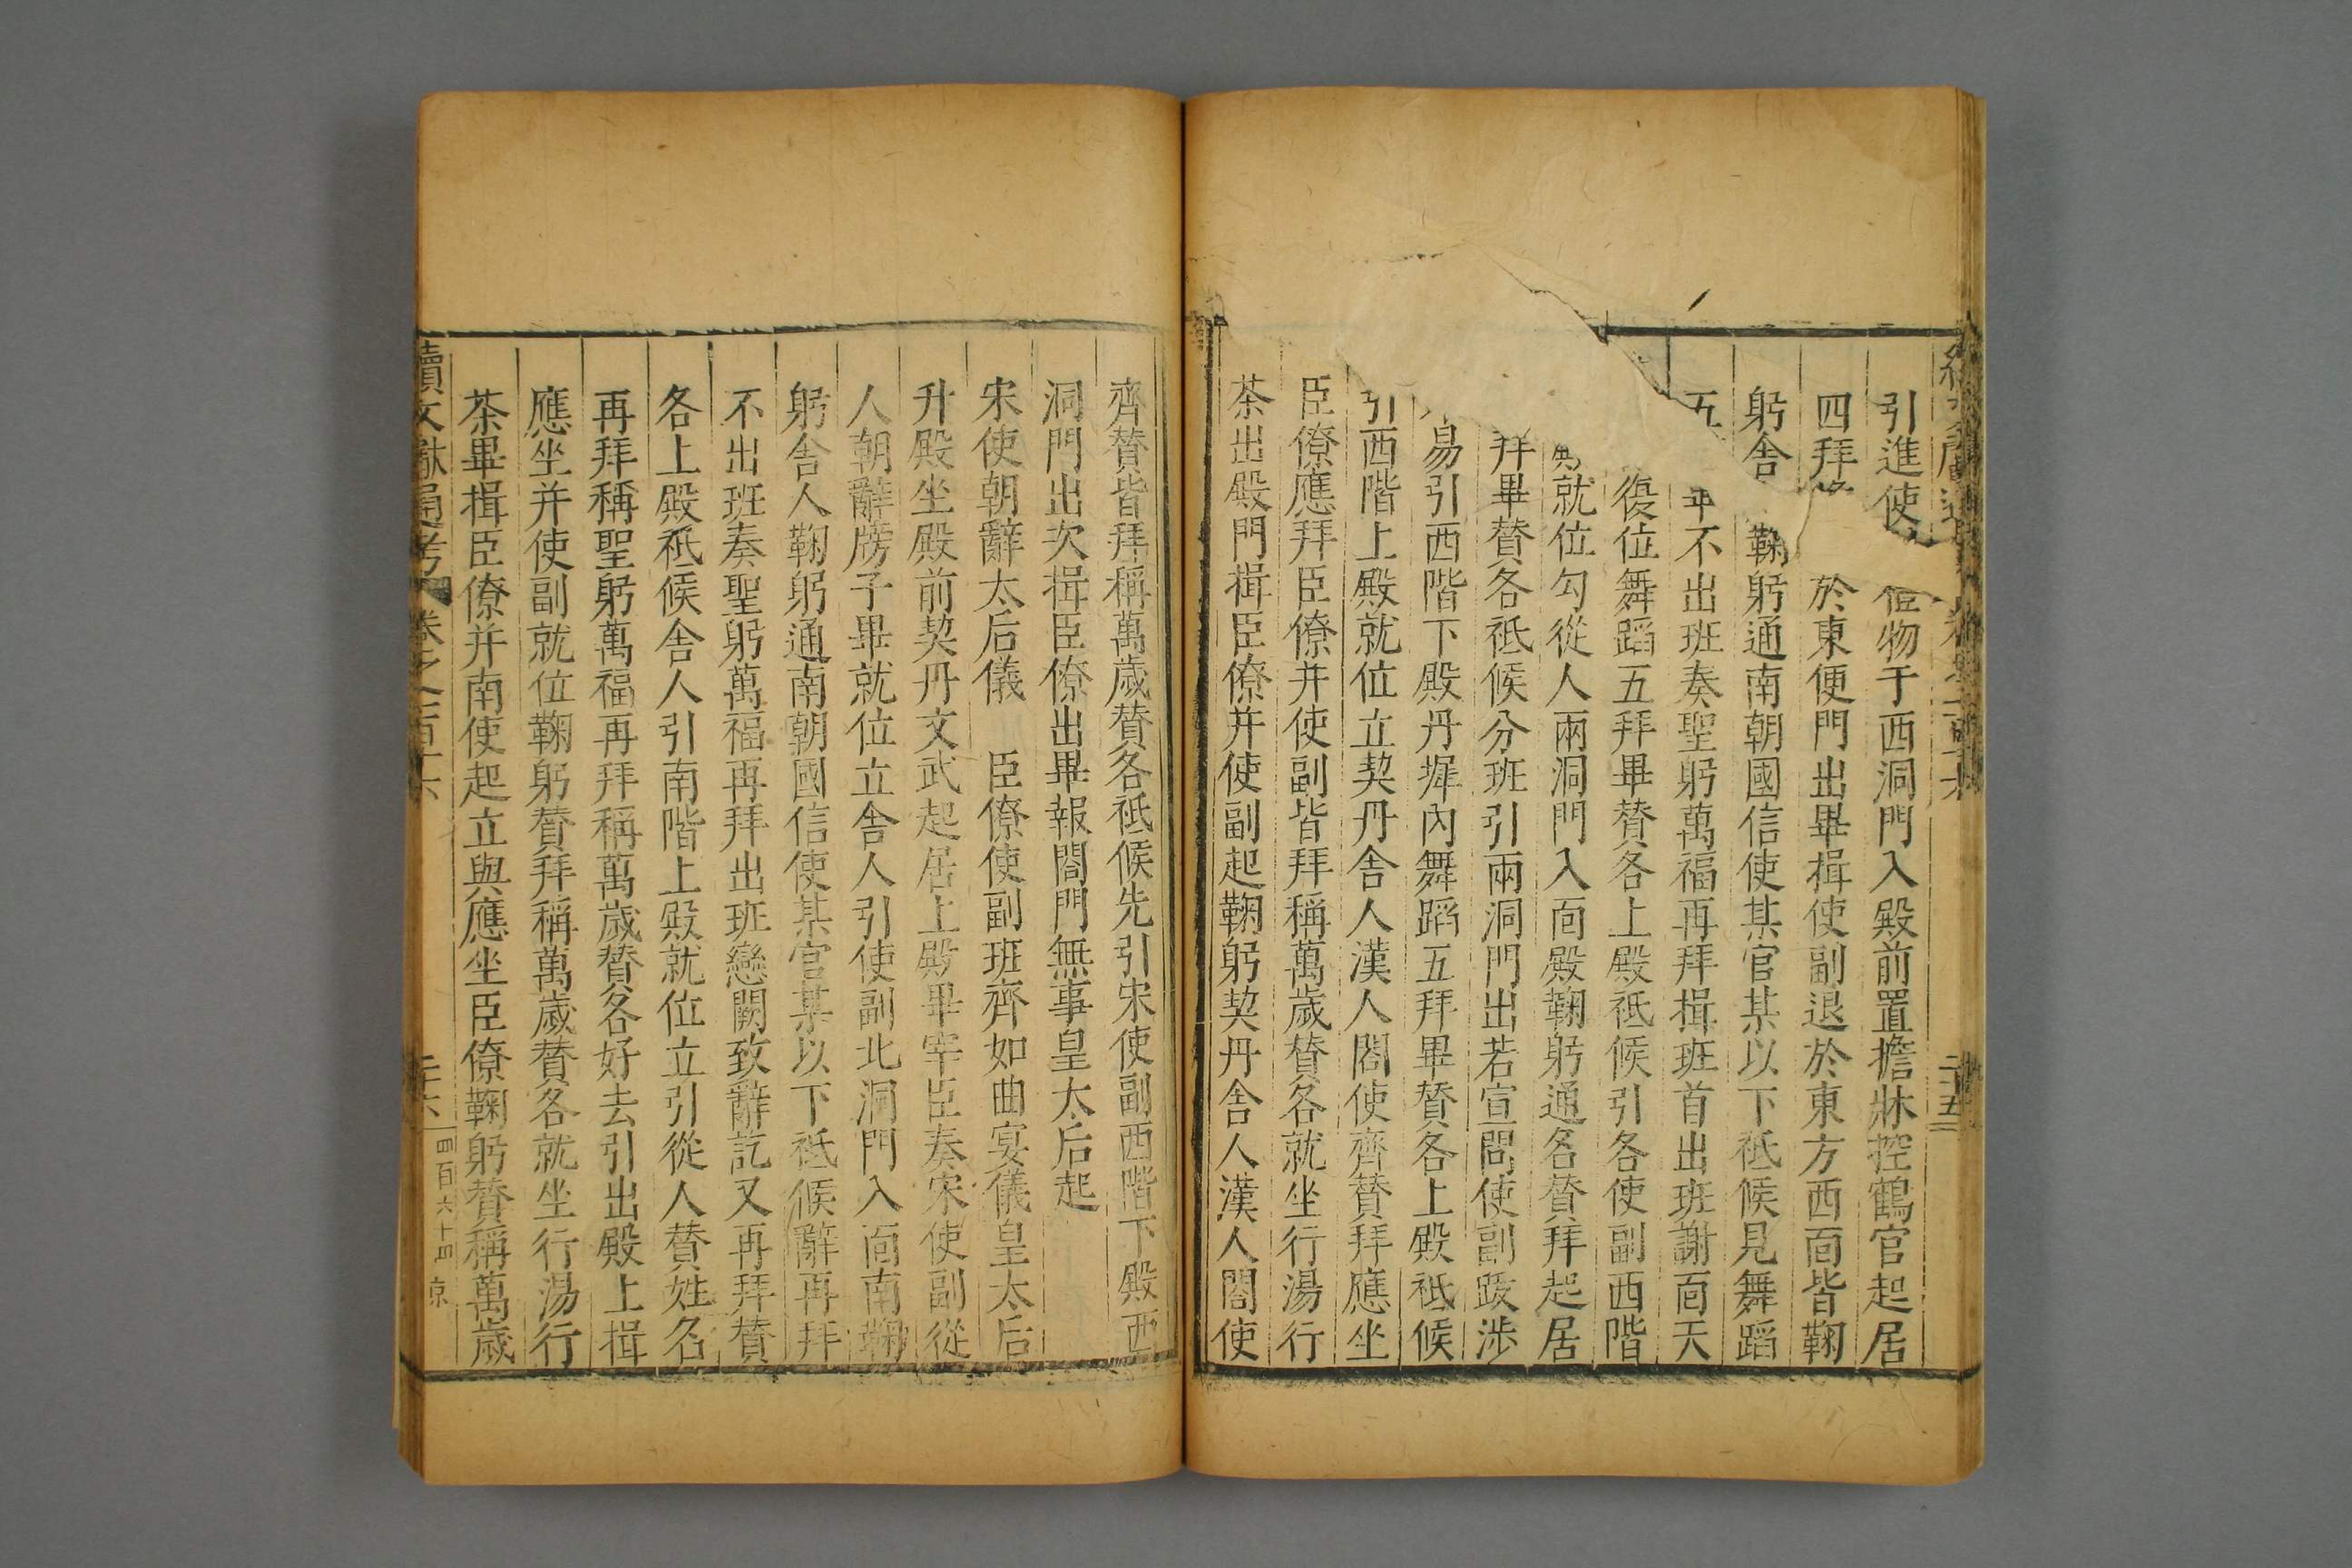 引進使 物于西洞門入殿前置擔牀控鶴官起居
四拜 於東便門出畢揖使副退於東方西面皆鞠
躬舍 鞠躬通南朝國信使某官某以下祗候見舞蹈
五 不出班奏聖躬萬福再拜揖班首出班謝面天
復位舞蹈五拜畢贊各上殿祗候引各使副西階
就位勾從人兩洞門入面殿鞠躬通名贊拜起居
拜畢贊各祗候分班引兩洞門出若宣問使副跋涉
易引西階下殿丹墀內舞蹈五拜畢贊各上殿祗候
引西階上殿就位立契丹舍人漢人閤使齊贊拜應坐
臣僚應拜臣僚并使副皆拜稱萬歲贊各就坐行湯行
茶出殿門揖臣僚并使副起鞠躬契丹舍人漢人閤使
齊贊皆拜稱萬歲贊各祗候先引宋使副西階下殿西
洞門出次揖臣僚出畢報閤門無事皇太后起
宋使朝辭太后儀 臣僚使副班齊如曲宴儀皇太后
升殿坐殿前契丹文武起居上殿畢宰臣奏宋使副從
人朝辭牓子畢就位立舍人引使副北洞門入面南鞠
躬舍人鞠躬通南朝國信使某官某以下祗候辭再拜
不出班奏聖躬萬福再拜出班戀闕致辭訖又再拜贊
各上殿祗候舍人引南階上殿就位立引從人贊姓名
再拜稱聖躬萬福再拜稱萬歲贊各好去引出殿上揖
應坐并使副就位鞠躬贊拜稱萬歲贊各就坐行湯行
茶畢揖臣僚并南使起立與應坐臣僚鞠躬贊稱萬歲
續文獻通考 卷之一百十六 二十六 四百六十四 京